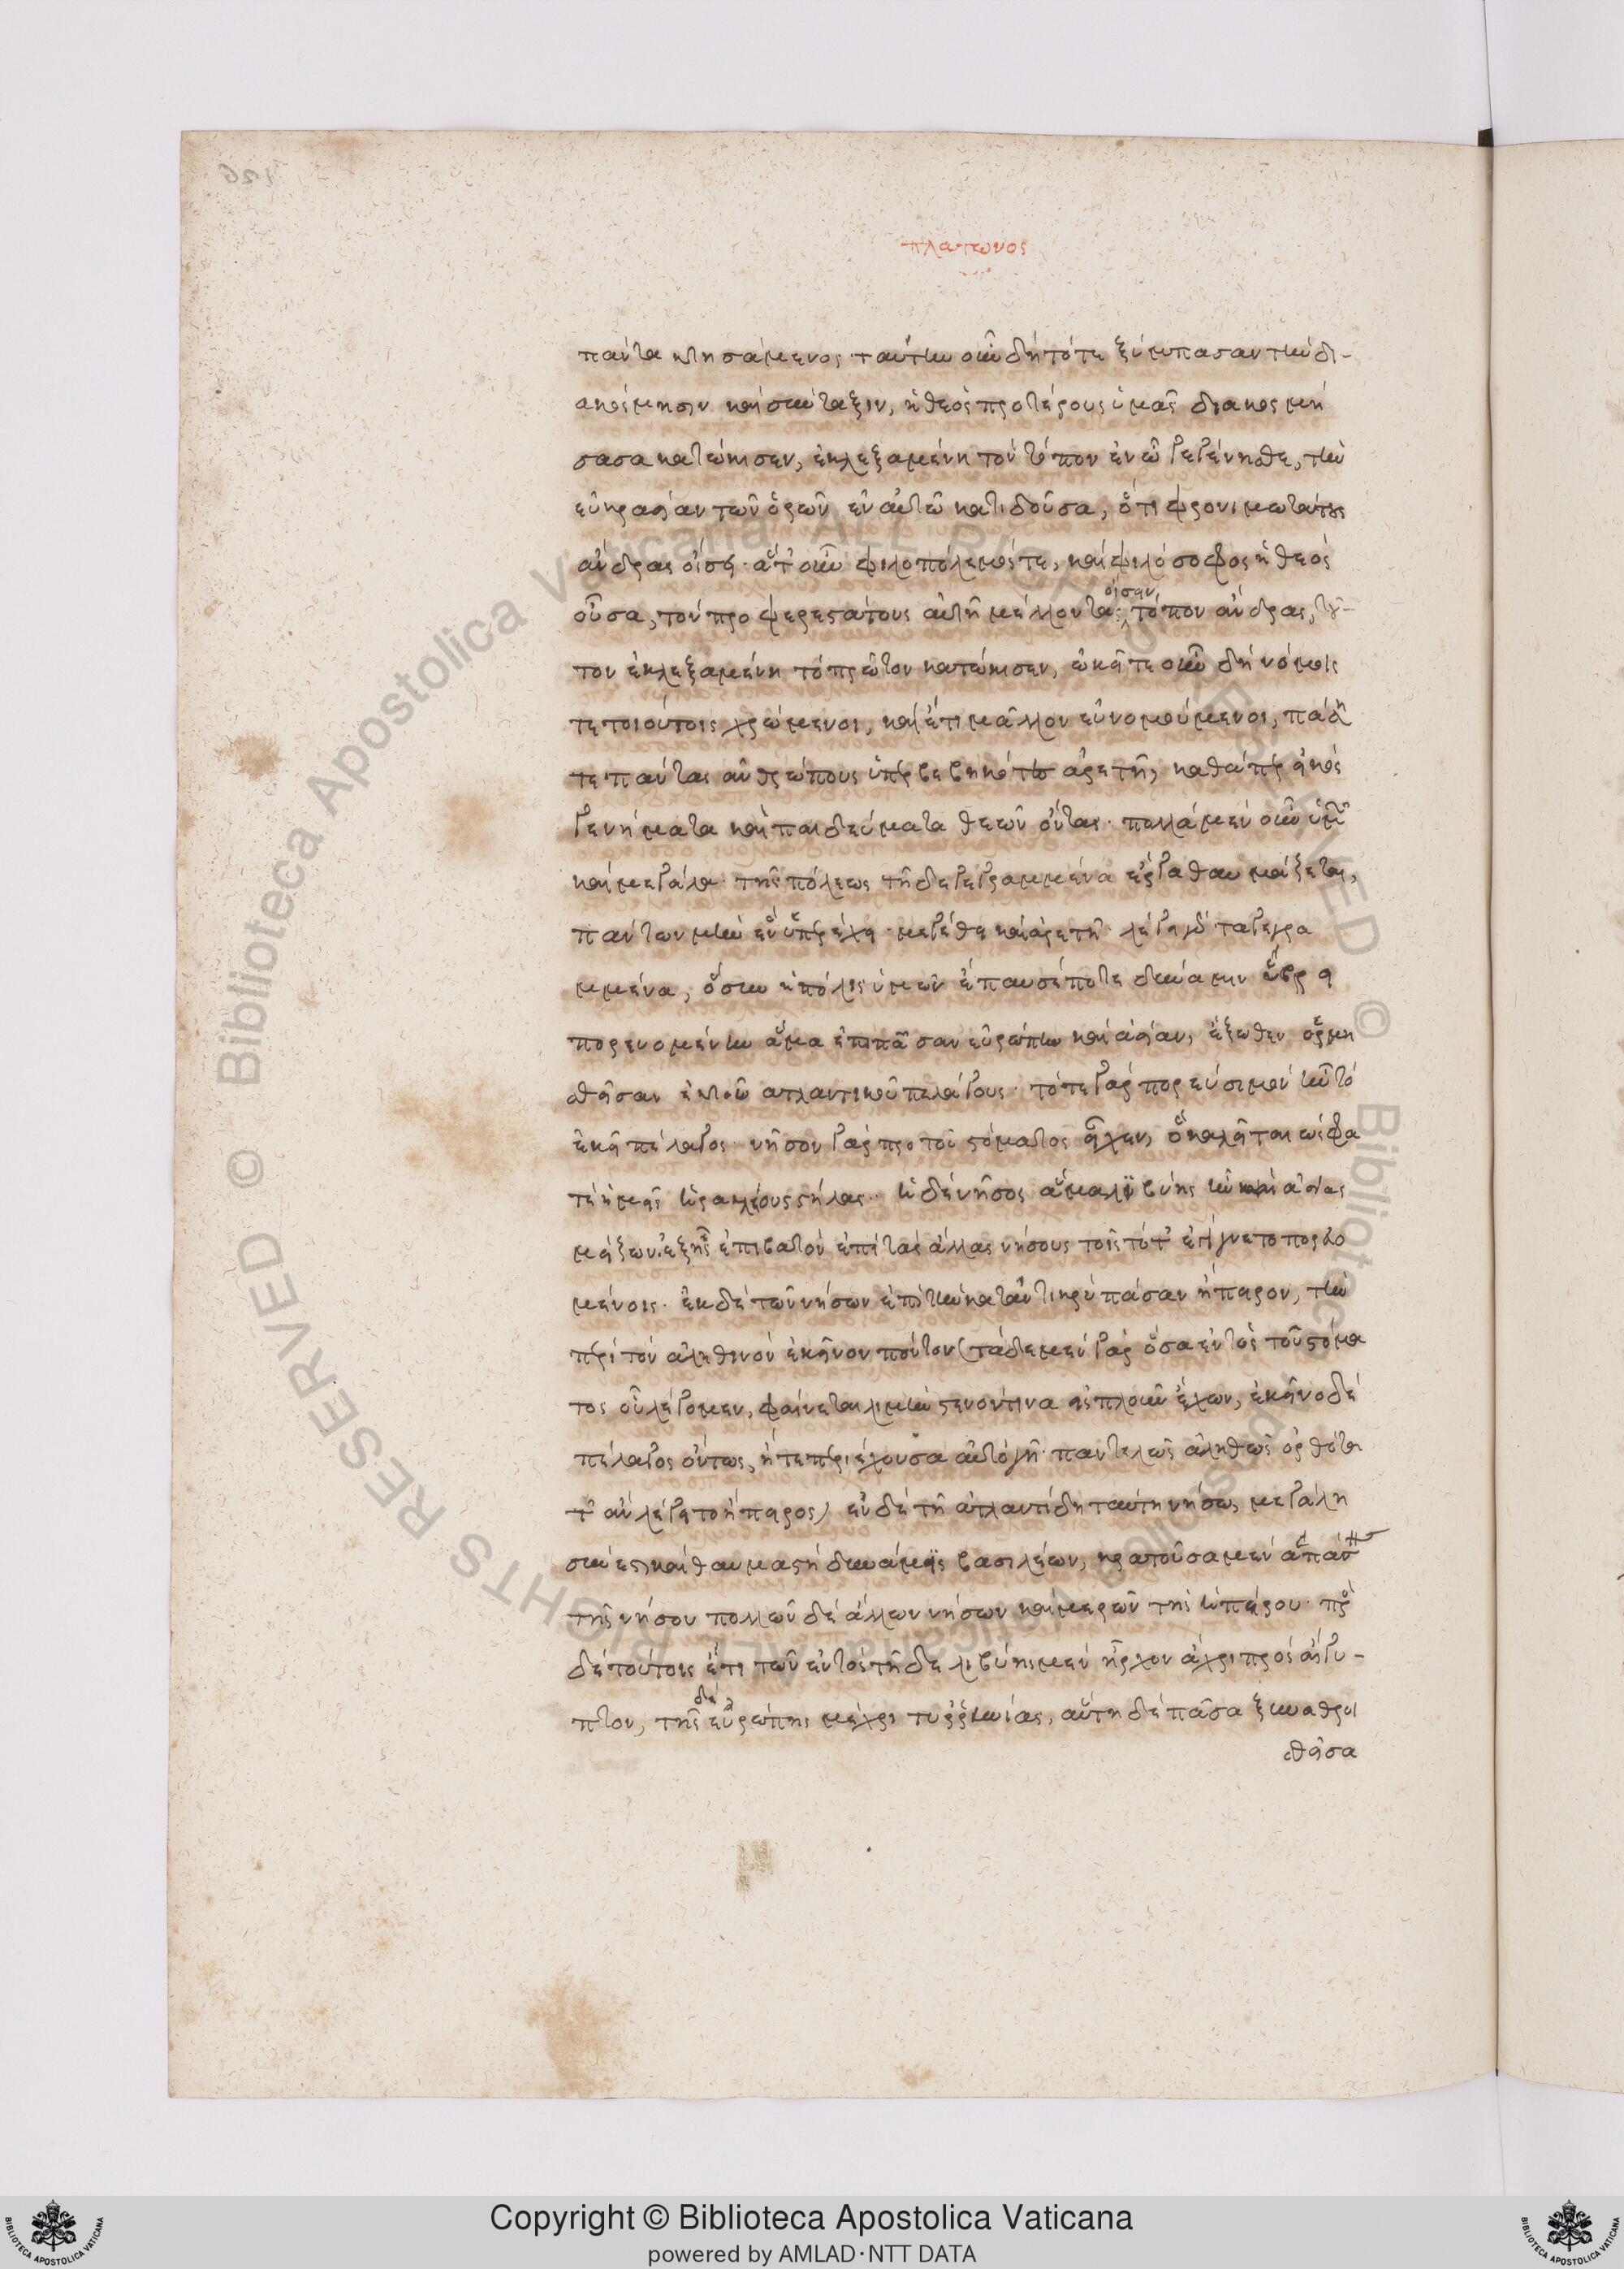 πλατωνος
πάντα κτησάμενος. ταύτην οὖν δὴ τότε ξύμπασαν τὴν δι-
ακόσμησιν καὶ σύνταξιν, ἡ θεὸς προτέρους ὑμᾶς διακοσμή
σασα κατῴκισεν, ἐκλεξαμένη τὸν τόπον ἐν ᾧ γεγένησθε, τὴν
εὐκρασίαν τῶν ὡρῶν ἐν αὐτῶ κατιδοῦσα, ὅτι φρονιμωτάτους
ἄνδρας οἴσει. ἅτ' οὖν φιλοπόλεμός τε, καὶ φιλόσοφος ἡ θεὸς
οὖσα, τὸν προσφερεστάτους αὐτῆ μέλλοντα οἴσειν τόπον ἄνδρας, τοῦ-
τον ἐκλεξαμένη τὸ πρῶτον κατῴκισεν, ὠκεῖτε οὖν δὴ νόμοις
τε τοιούτοις χρώμενοι, καὶ ἔτι μᾶλλον εὐνομούμενοι, πάσῃ
τε πάντας ἀνθρώπους ὑπερβεβηκότες ἀρετῆ, καθάπερ εἰκὸς
γεννήματα καὶ παιδεύματα θεῶν ὄντας. πολλὰ μὲν οὖν ὑμῶν
καὶ μεγάλα τῆς πόλεως τῆδε γεγραμμένα ἔργα θαυμάζεται,
πάντων μὴν ἓν ὑπερέχει μεγέθει καὶ ἀρετῆ. λέγει γὰρ τὰ γεγρα
μμένα, ὅσην ἡ πόλις ὑμῶν ἔπαυσέ ποτε δύναμιν ὕβρει
πορευομένην ἅμα ἐπὶ πᾶσαν εὐρώπην καὶ ἀσίαν, ἔξωθεν ὁρμη
θεῖσαν ἐκ τοῦ ἀτλαντικοῦ πελάγους. τότε γὰρ πορεύσιμον ἦν τὸ
ἐκεῖ πέλαγος. νῆσον γὰρ πρὸ τοῦ στόματος εἶχεν, ὃ καλεῖται ὥς φα
τὲ ἡμεῖς ἡρακλέους στήλας. ἡ δὲ νῆσος ἅμα λιβύης ἦν καὶ ἀσίας
μείζων. ἐξ ἧς ἐπιβατὸν ἐπὶ τὰς ἄλλας νήσους τοῖς τότ' ἐγίγνετο πορευο
μένοις. ἐκ δὲ τῶν νήσων ἐπὶ τὴν καταντικρὺ πᾶσαν ἤπειρον, τὴν
περὶ τὸν ἀληθινὸν ἐκεῖνον πόντον (τάδε μὲν γὰρ ὅσα ἐντὸς τοῦ στόμα
τος οὗ λέγομεν, φαίνεται λιμὴν στενόν τινα εἴσπλουν ἔχων, ἐκεῖνο δὲ
πέλαγος ὄντως, ἥ τε περιέχουσα αὐτὸ γῆ παντελῶς ἀληθῶς ὀρθότα
τ' ἂν λέγοιτο ἤπειρος) ἐν δὲ τῆ ἀτλαντίδι ταύτη νήσω, μεγάλη
συνέστη καὶ θαυμαστὴ δύναμις βασιλέων, κρατοῦσα μὲν ἁπάσης
τῆς νήσου πολλῶν δὲ ἄλλων νήσων καὶ μερῶν τῆς ἠπείρου. πρὸς
δὲ τούτοις ἔτι τῶν ἐντὸς τῆδε λιβύης μὲν ἦρχον ἄχρι πρὸς αἴγυ-
πτον, τῆς δὲ εὐρώπης μέχρι τυρρηνίας, αὕτη δὲ πᾶσα ξυναθροι
σθεῖσα
Copyright © Biblioteca Apostolica Vaticana
powered by AMLAD·NTT DATA